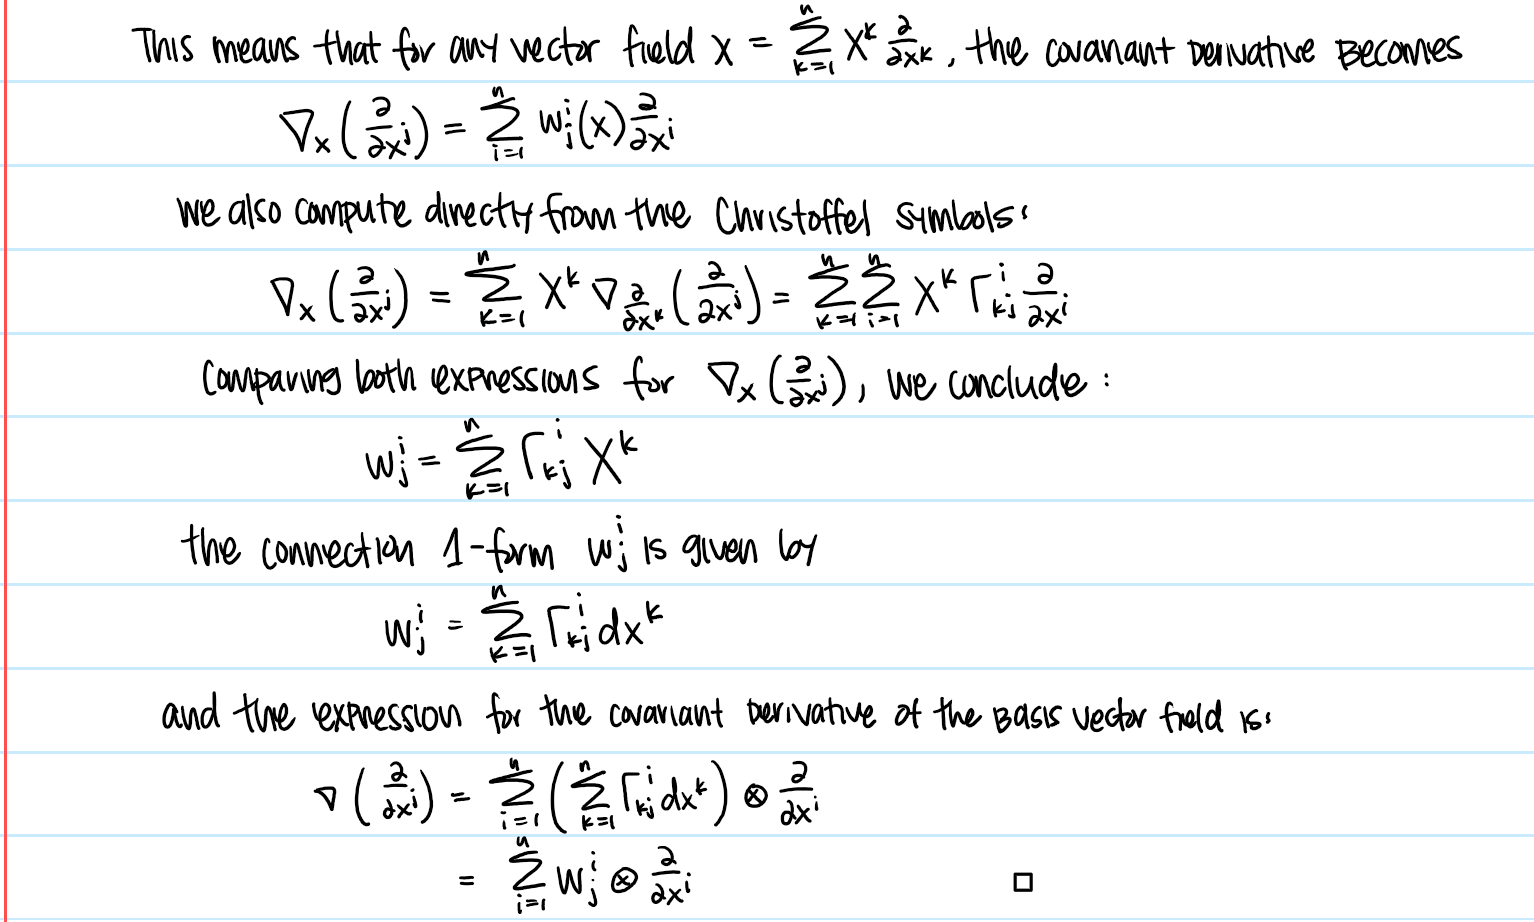 This means that for any vector field X = ∑_{k=1}^{n} X^k ∂/∂x^k, the covariant Derivative Becomes
∇_X (∂/∂x^j) = ∑_{i=1}^{n} w_j^i(X) ∂/∂x^i
we also compute directly from the Christoffel symbols:
∇_X (∂/∂x^j) = ∑_{k=1}^{n} X^k ∇_{∂/∂x^k} (∂/∂x^j) = ∑_{k=1}^{n} ∑_{i=1}^{n} X^k Γ_{kj}^i ∂/∂x^i
Comparing both expressions for ∇_X (∂/∂x^j), we conclude:
w_j^i = ∑_{k=1}^{n} Γ_{kj}^i X^k
the connection 1-form w_j^i is given by
w_j^i = ∑_{k=1}^{n} Γ_{kj}^i dx^k
and the expression for the covariant Derivative of the Basis vector field is:
∇ (∂/∂x^j) = ∑_{i=1}^{n} (∑_{k=1}^{n} Γ_{kj}^i dx^k) ⊗ ∂/∂x^i
= ∑_{i=1}^{n} w_j^i ⊗ ∂/∂x^i □